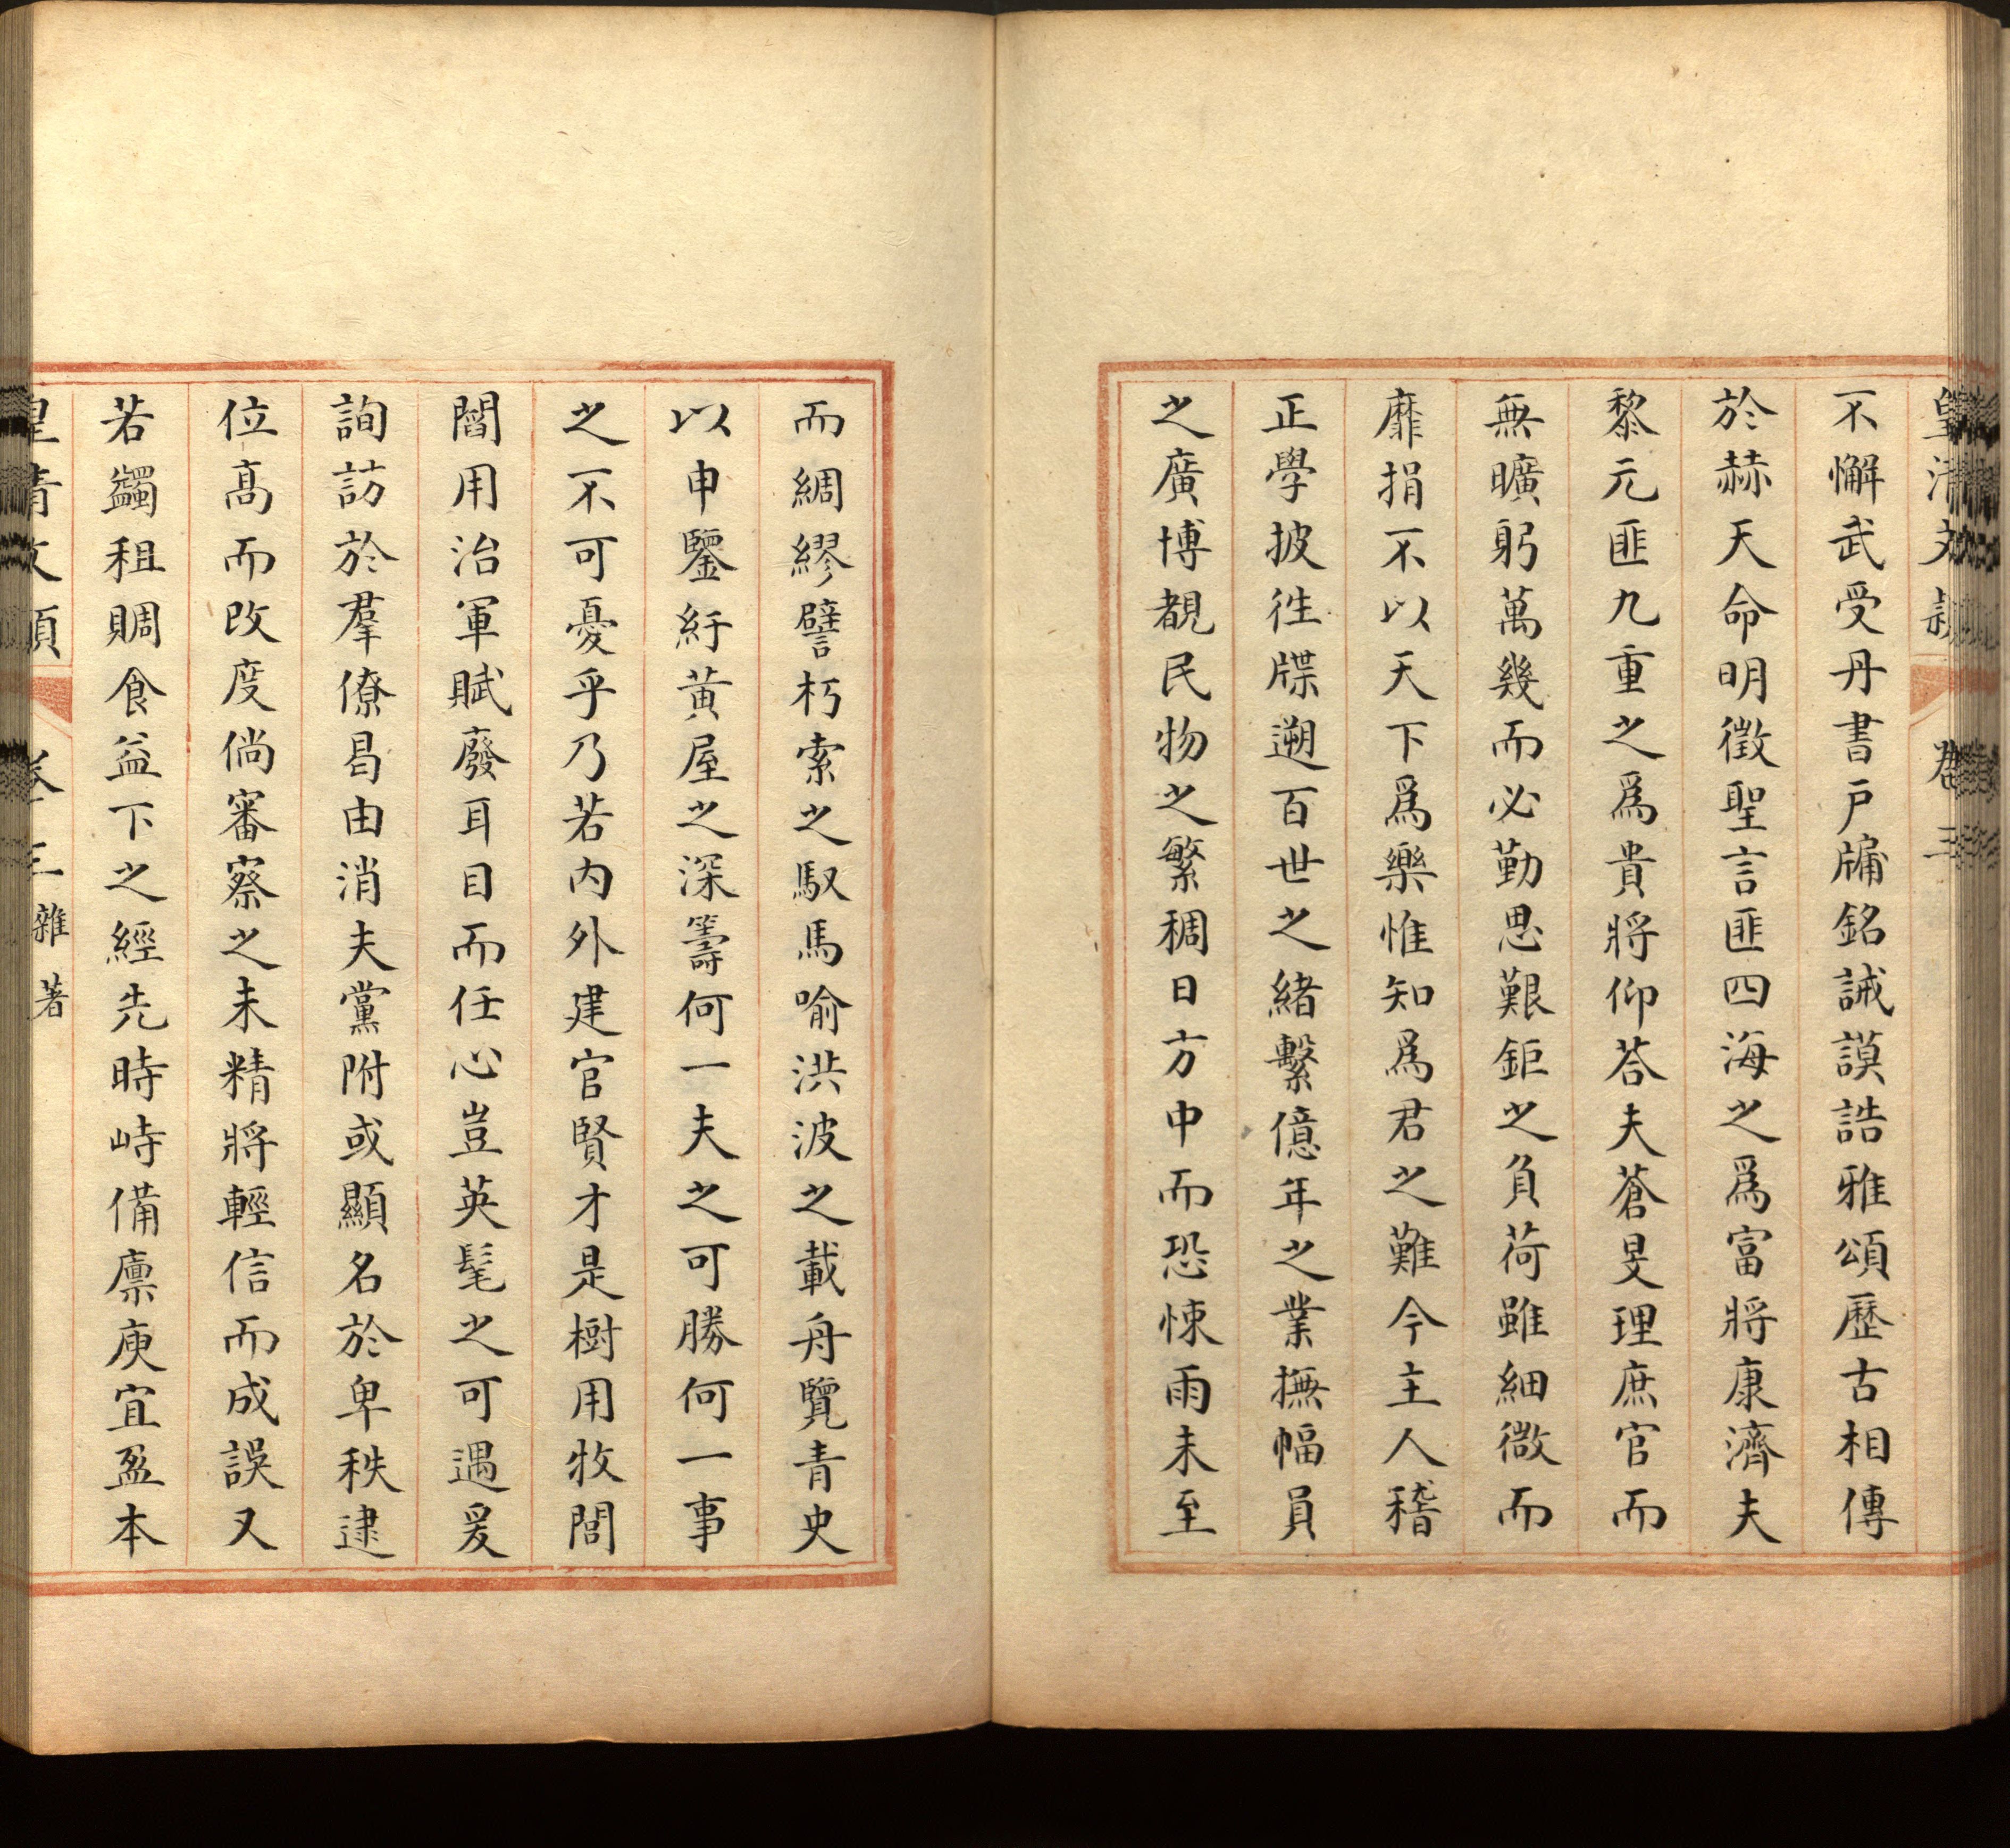 皇清文穎
卷三
不懈武受丹書戶牖銘誡謨誥雅頌歷古相傳
於赫天命明徵聖言匪四海之爲富將康濟夫
黎元匪九重之爲貴將仰荅夫蒼旻理庶官而
無曠躬萬幾而必勤思艱鉅之負荷雖細微而
靡捐不以天下爲樂惟知爲君之難今主人稽
正學披徃牒遡百世之緒繫億年之業撫幅員
之廣博覩民物之繁稠日方中而恐悚雨未至
而綢繆譬朽索之馭馬喻洪波之載舟覽青史
以申鑒紆黃屋之深籌何一夫之可勝何一事
之不可憂乎乃若內外建官賢才是樹用牧閭
閻用治軍賦廢耳目而任心豈英髦之可遇爰
詢訪於羣僚曷由消夫黨附或顯名於卑秩逮
位髙而改度倘審察之未精將輕信而成誤又
若蠲租賙食益下之經先時峙備廩庾宜盈本
皇清文穎
卷三
雜著